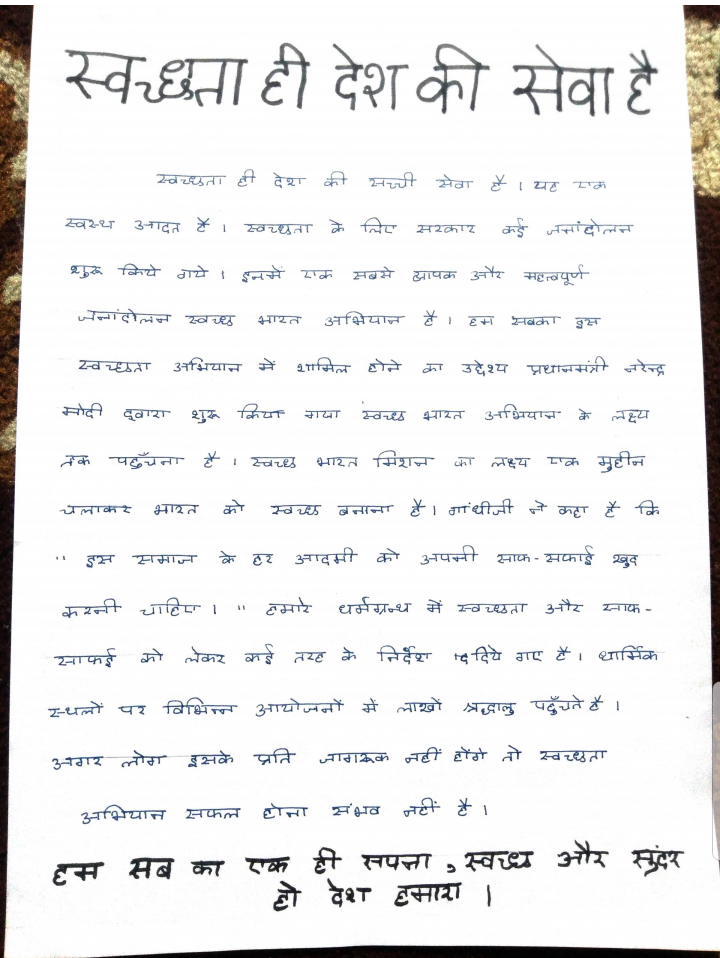 स्वच्छता ही देश की सेवा है
स्वच्छता ही देश की सच्ची सेवा है । यह एक
स्वस्थ आदत है । स्वच्छता के लिए सरकार कई जनांदोलन
शुरू किये गये । इनमें एक सबसे व्यापक और महत्वपूर्ण
जनांदोलन स्वच्छ भारत अभियान है । हम सबका इस
स्वच्छता अभियान में शामिल होने का उद्देश्य प्रधानमंत्री नरेन्द्र
मोदी द्वारा शुरू किया गया स्वच्छ भारत अभियान के लक्ष्य
तक पहुँचना है । स्वच्छ भारत मिशन का लक्ष्य एक मुहीन
चलाकर भारत को स्वच्छ बनाना है । गांधीजी ने कहा है कि
" इस समाज के हर आदमी को अपनी साफ-सफाई खुद
करनी चाहिए । " हमारे धर्मग्रन्थ में स्वच्छता और साफ-
साफई को लेकर कई तरह के निर्देश दिये गए है । धार्मिक
स्थलों पर विभिन्न आयोजनों में लाखों श्रद्धालु पहुँचते है ।
अगर लोग इसके प्रति जागरूक नहीं होंगे तो स्वच्छता
अभियान सफल होना संभव नहीं है ।
हम सब का एक ही सपना , स्वच्छ और सुंदर
हो देश हमारा ।